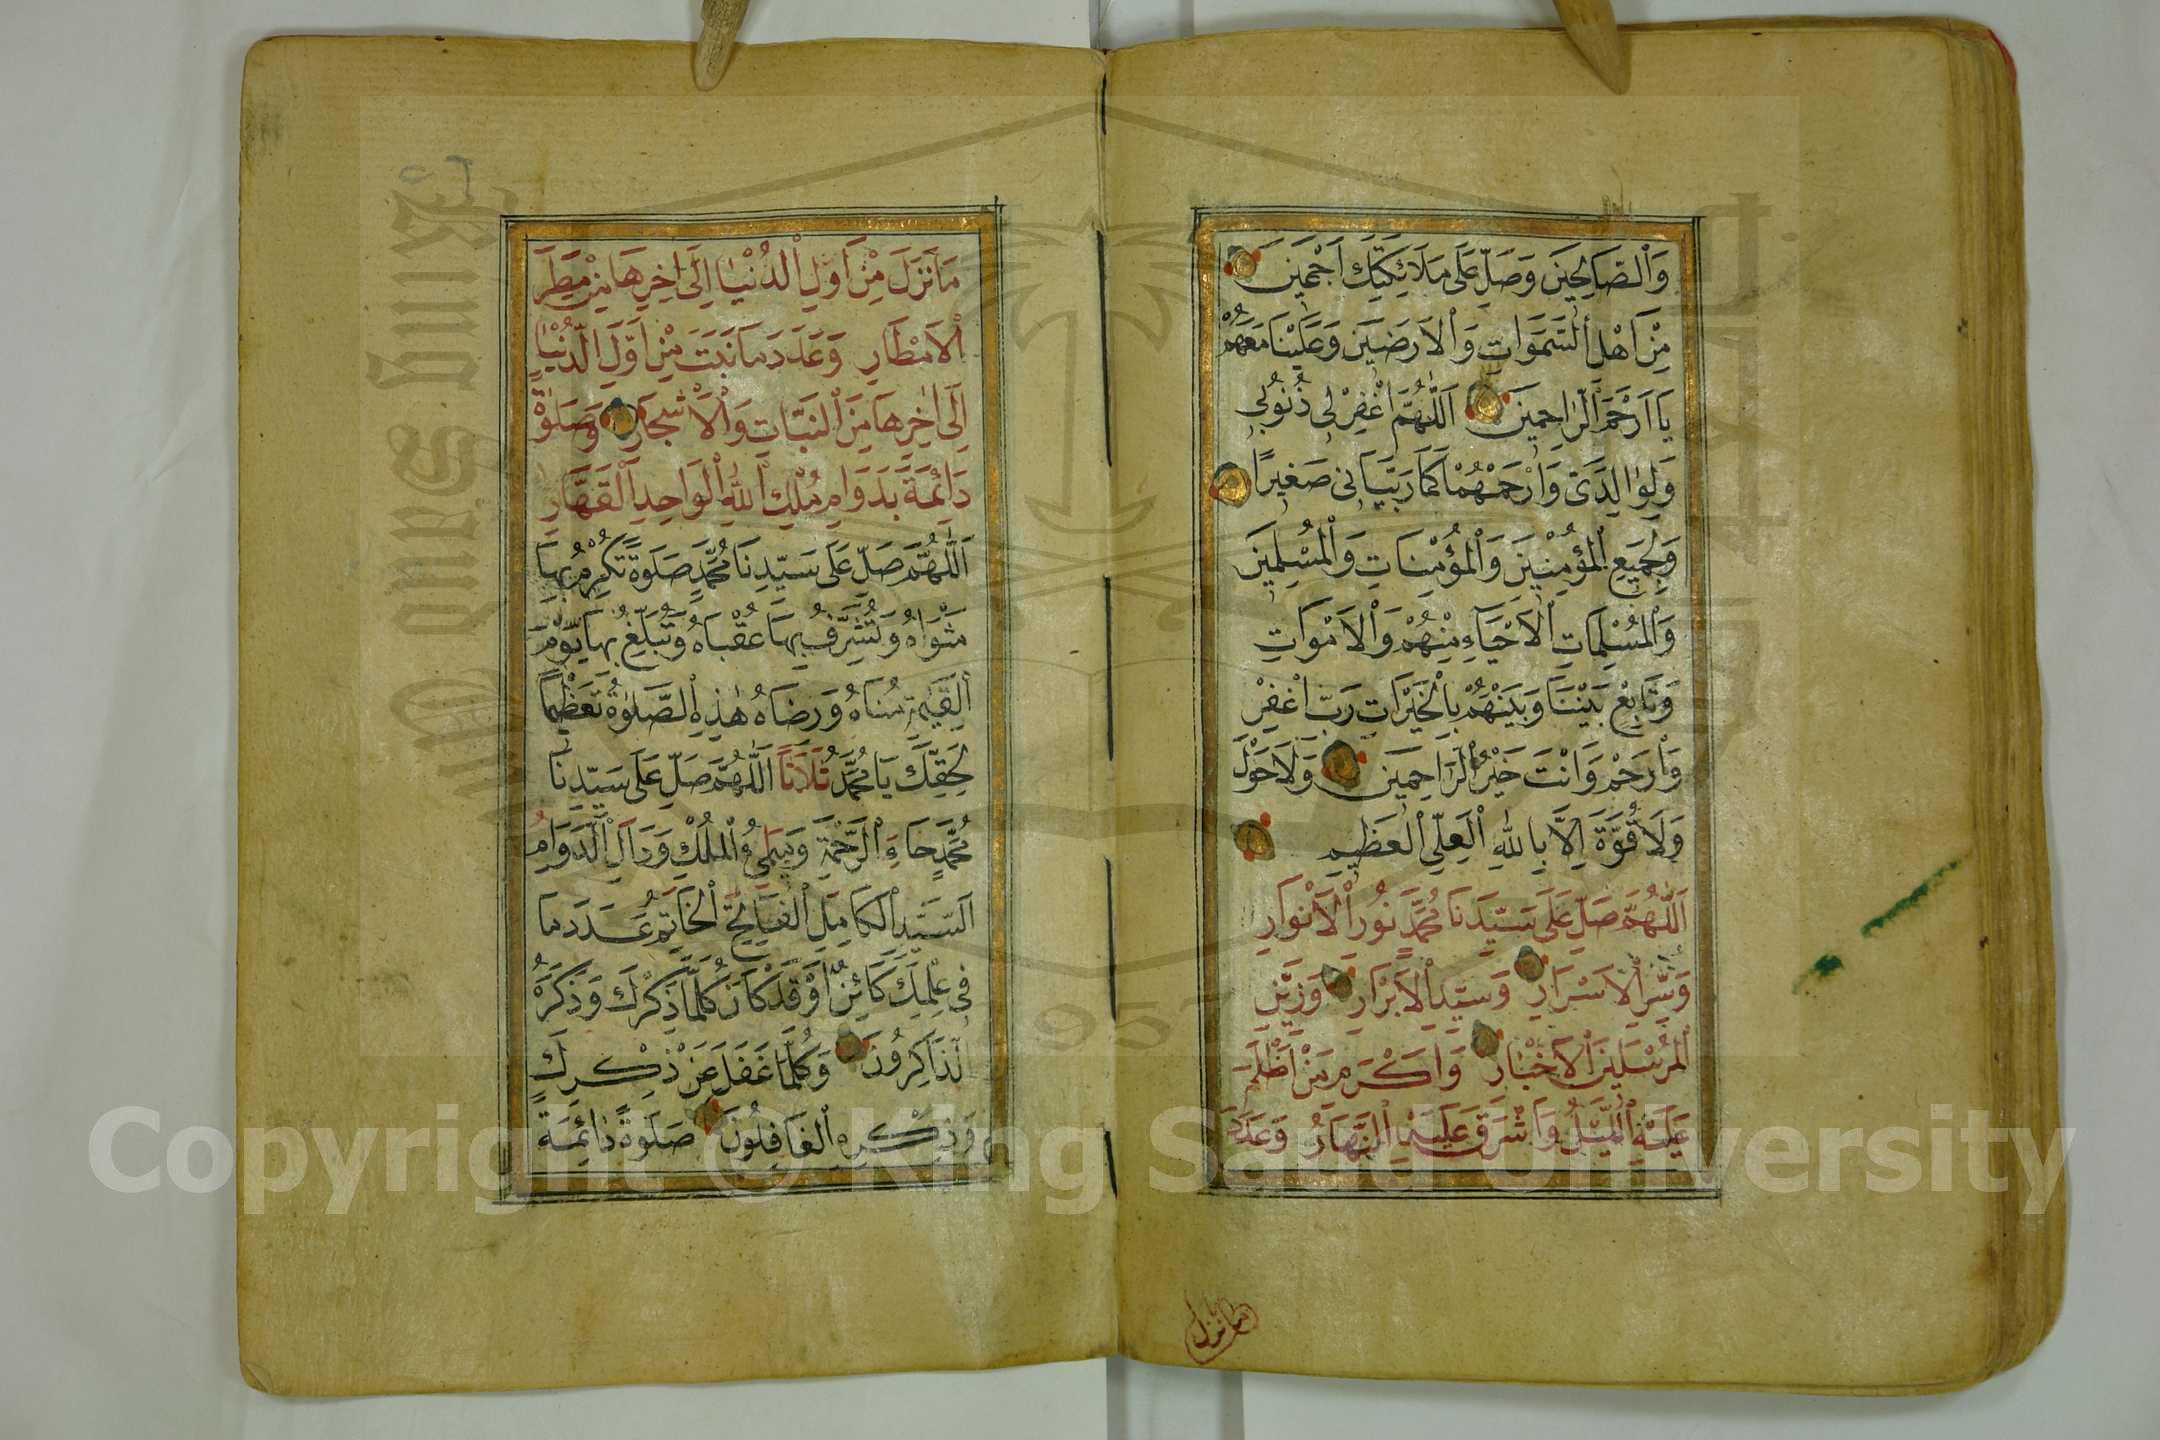 وَالصَّالِحِينَ وَصَلِّ عَلَى مَلَائِكَتِكَ اَجْمَعِينَ
مِنْ اَهْلِ السَّمَوَاتِ وَالْاَرَضِينَ وَعَلَيْنَا مَعَهُمْ
يَا اَرْحَمَ الرَّاحِمِينَ اَللّٰهُمَّ اغْفِرْ لِى ذُنُوبِى
وَلِوَالِدَىَّ وَارْحَمْهُمَا كَمَا رَبَّيَانِى صَغِيرًا
وَلِجَمِيعِ الْمُؤْمِنِينَ وَالْمُؤْمِنَاتِ وَالْمُسْلِمِينَ
وَالْمُسْلِمَاتِ الْاَحْيَاءِ مِنْهُمْ وَالْاَمْوَاتِ
وَتَابِعْ بَيْنَنَا وَبَيْنَهُمْ بِالْخَيْرَاتِ رَبِّ اغْفِرْ
وَارْحَمْ وَاَنْتَ خَيْرُ الرَّاحِمِينَ وَلَا حَوْلَ
وَلَا قُوَّةَ اِلَّا بِاللّٰهِ الْعَلِىِّ الْعَظِيمِ
اَللّٰهُمَّ صَلِّ عَلَى سَيِّدِنَا مُحَمَّدٍ نُورِ الْاَنْوَارِ
وَسِرِّ الْاَسْرَارِ وَسَيِّدِ الْاَبْرَارِ وَزَيْنِ
الْمُرْسَلِينَ الْاَخْيَارِ وَاَكْرَمِ مَنْ اَظْلَمَ
عَلَيْهِ الَّيْلُ وَاَشْرَقَ عَلَيْهِ النَّهَارُ وَعَدَدَ
مانزل
مَا نَزَلَ مِنْ اَوَّلِ الدُّنْيَا اِلَى اٰخِرِهَا مِنْ مَطَرِ
الْاَمْطَارِ وَعَدَدَ مَا نَبَتَ مِنْ اَوَّلِ الدُّنْيَا
اِلَى اٰخِرِهَا مِنَ النَّبَاتِ وَالْاَشْجَارِ وَصَلٰوةً
دَائِمَةً بِدَوَامِ مُلْكِ اللّٰهِ الْوَاحِدِ الْقَهَّارِ
اَللّٰهُمَّ صَلِّ عَلَى سَيِّدِنَا مُحَمَّدٍ صَلَوةً تُكْرِمُ بِهَا
مَثْوَاهُ وَتُشَرِّفُ بِهَا عُقْبَاهُ وَتُبَلِّغُ بِهَا يَوْمَ
الْقِيٰمَةِ مُنَاهُ وَرِضَاهُ هٰذِهِ الصَّلٰوةُ تَعْظِيمًا
لِحَقِّكَ يَا مُحَمَّدُ ثَلَاثًا اَللّٰهُمَّ صَلِّ عَلَى سَيِّدِنَا
مُحَمَّدٍ حَاءِ الرَّحْمَةِ وَمِيمَىِ الْمُلْكِ وَدَالِ الدَّوَامِ
السَّيِّدِ الْكَامِلِ الْفَاتِحِ الْخَاتِمِ عَدَدَ مَا
فِى عِلْمِكَ كَائِنٌ اَوْ قَدْ كَانَ كُلَّمَا ذَكَرَكَ وَذَكَرَهُ
الذَّاكِرُونَ وَكُلَّمَا غَفَلَ عَنْ ذِكْرِكَ
وَذِكْرِهِ الْغَافِلُونَ صَلَوةً دَائِمَةً
King Saud University
1957
Copyright © King Saud University